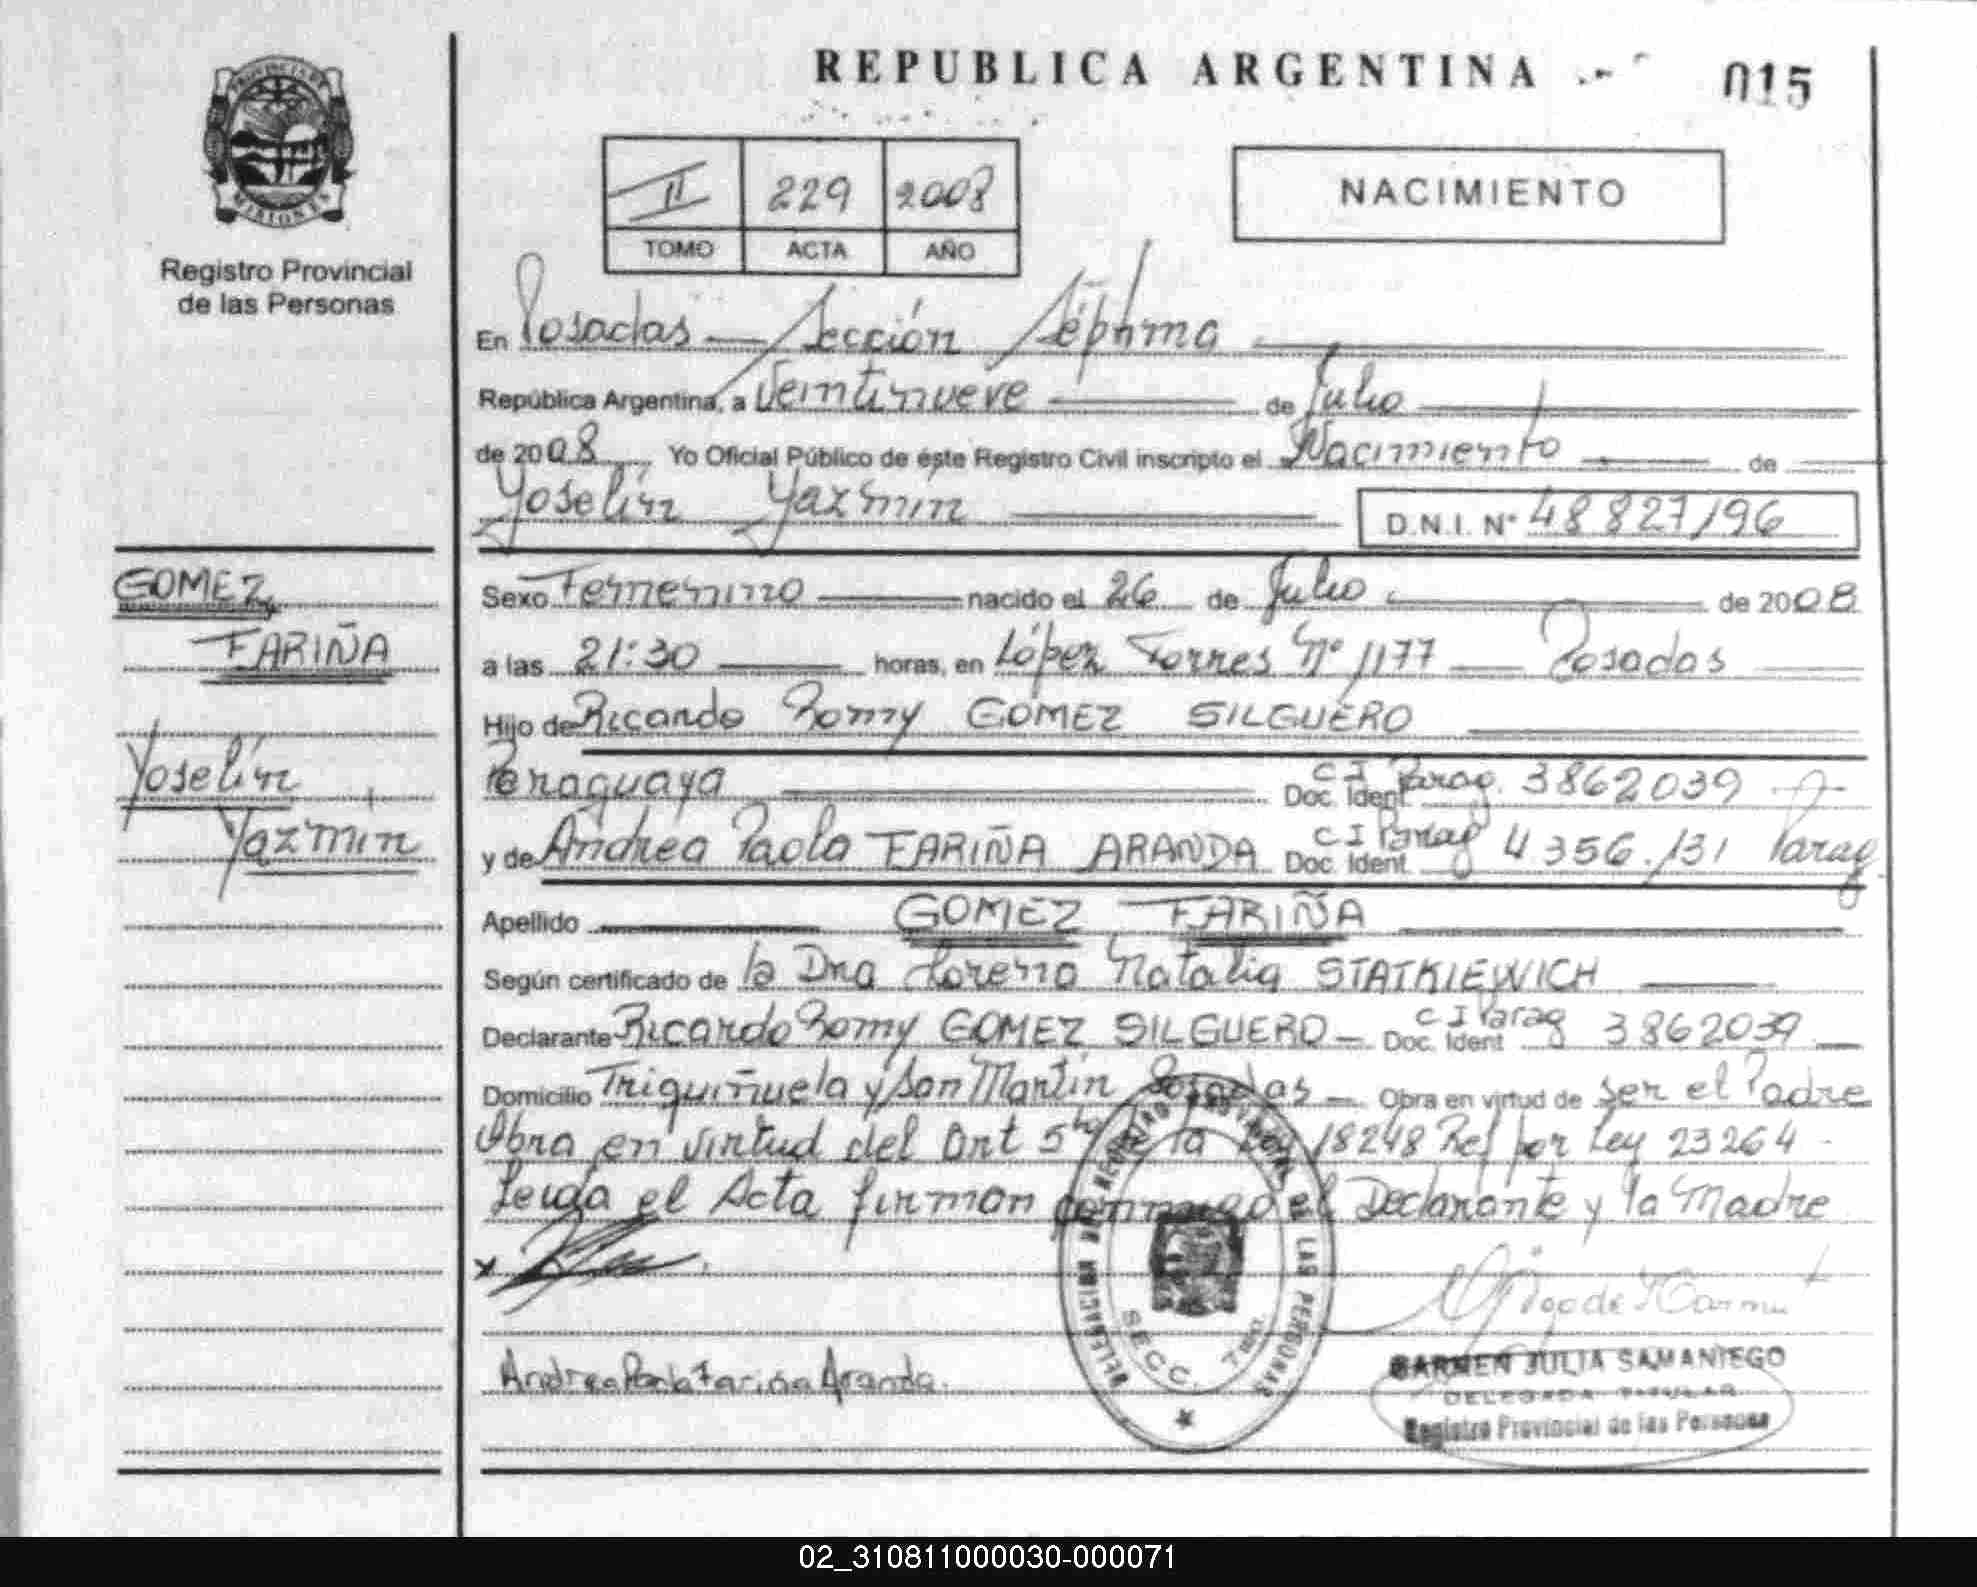 REPUBLICA ARGENTINA
015
PROVINCIA DE
MISIONES
Registro Provincial
de las Personas
II 229 2008
TOMO ACTA AÑO
NACIMIENTO
En Posadas — Sección Séptima
República Argentina, a Veintinueve de Julio
de 2008 Yo Oficial Público de éste Registro Civil inscripto el Nacimiento de
Yoselín Yazmin D.N.I. N° 48827196
GOMEZ
FARIÑA
Yoselín
Yazmin
Sexo Femenino nacido el 26 de Julio de 2008
a las 21:30 horas, en López Torres N° 1177 — Posadas
Hijo de Ricardo Romy GOMEZ SILGUERO
Paraguaya Doc. Ident. C I Parag. 3862039
y de Andrea Paola FARIÑA ARANDA Doc. Ident. C I Parag 4.356.131 Parag
Apellido GOMEZ FARIÑA
Según certificado de la Dra Lorena Natalia STATKIEWICH
Declarante Ricardo Romy GOMEZ SILGUERO — Doc. Ident C I Parag 3862039
Domicilio Triguiñuela y San Martín Posadas — Obra en virtud de ser el Padre
Obra en virtud del Art 5to de la Ley 18248 Ref por Ley 23264
Leida el Acta firman conmigo el Declarante y la Madre
x
Andrea Paola Fariña Aranda.
DELEGACION DEL REGISTRO PROVINCIAL DE LAS PERSONAS
SECC. 7ma.
CARMEN JULIA SAMANIEGO
DELEGADA TITULAR
Registro Provincial de las Personas
02_310811000030-000071